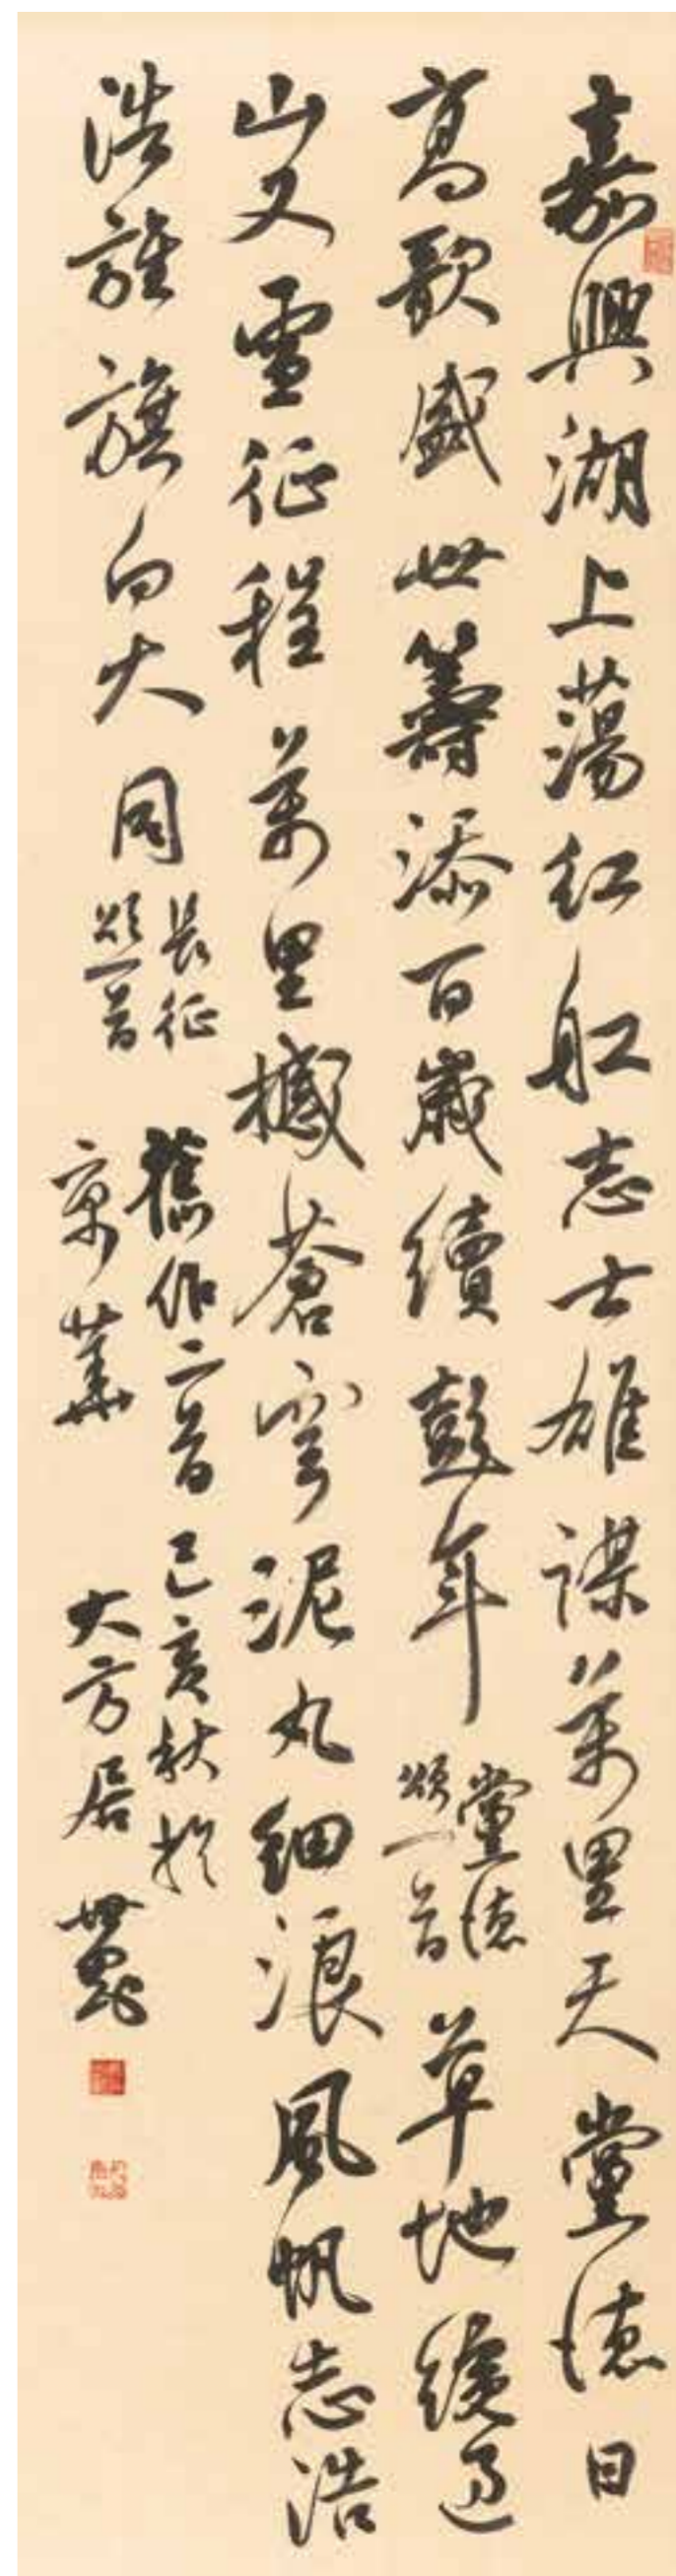 嘉興湖上蕩紅船志士雄謀萬里天黨德日
高歌盛世籌添百歲續彭年
黨德
頌一首
草地纔過
山又雪征程萬里撼蒼穹泥丸細浪風帆志浩
浩旌旗向大同
長征
頌一首
舊作二首己亥秋於
京華大方居